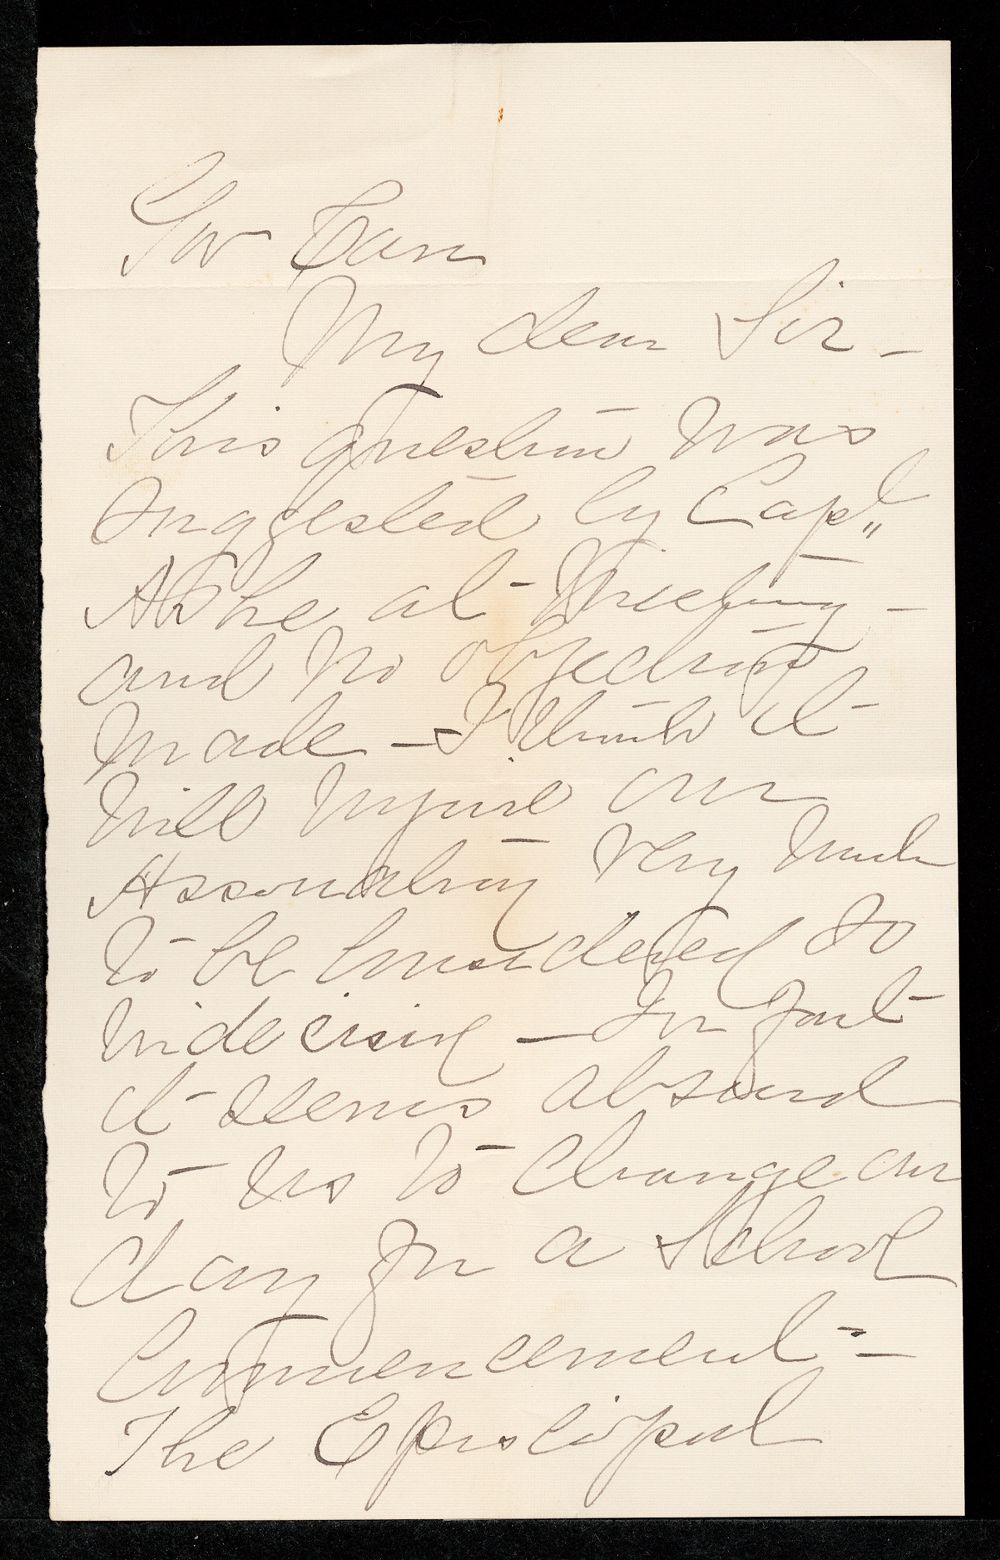 Gov Carr
My dear Sir -
This question was
suggested by Capt"
Ashe at Meeting -
and no objection
made - I think it
will injure our
Association very much
to be considered so
indecisive - In fact
it seems absurd
to us to change our
day for a School
Commencement -
The Episcopal